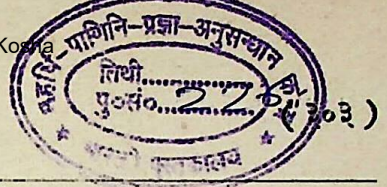 Kosha
महर्षि-पाणिनि-प्रज्ञा-अनुसन्धान
तिथी..............
पु०सं०..............
( ३०३ )
पुस्तकालय